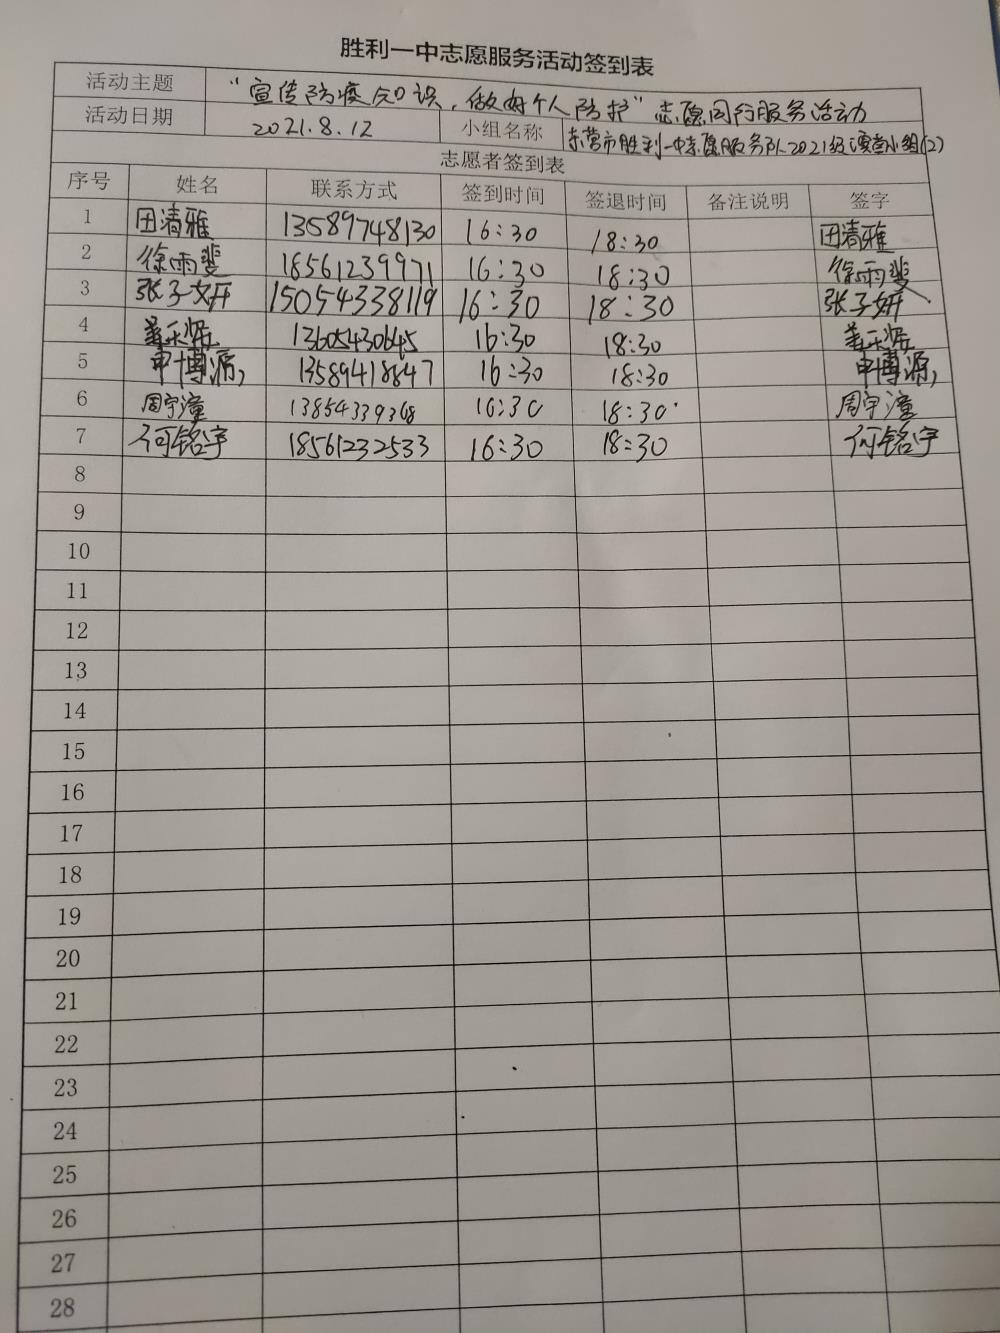 胜利一中志愿服务活动签到表
活动主题 “宣传防疫知识,做好个人防护”志愿同行服务活动
活动日期 2021.8.12 小组名称 东营市胜利一中志愿服务队2021级 小组(2)
志愿者签到表
序号 姓名 联系方式 签到时间 签退时间 备注说明 签字
1 田清雅 13589748130 16:30 18:30 田清雅
2 徐雨斐 18561239971 16:30 18:30 徐雨斐
3 张子妍 15054338119 16:30 18:30 张子妍
4 姜 13605430645 16:30 18:30 姜
5 申博源 13589418847 16:30 18:30 申博源
6 周宇潼 13854339368 16:30 18:30 周宇潼
7 何铭宇 18561232533 16:30 18:30 何铭宇
8
9
10
11
12
13
14
15
16
17
18
19
20
21
22
23
24
25
26
27
28